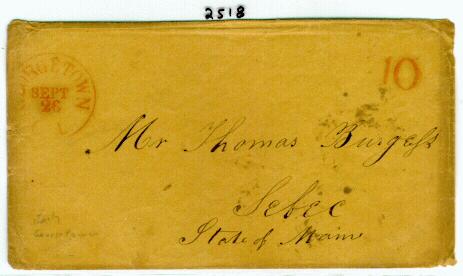 2518
GEORGETOWN
SEPT
26
10
Mr Thomas Burgess
Sebec
State of Maine